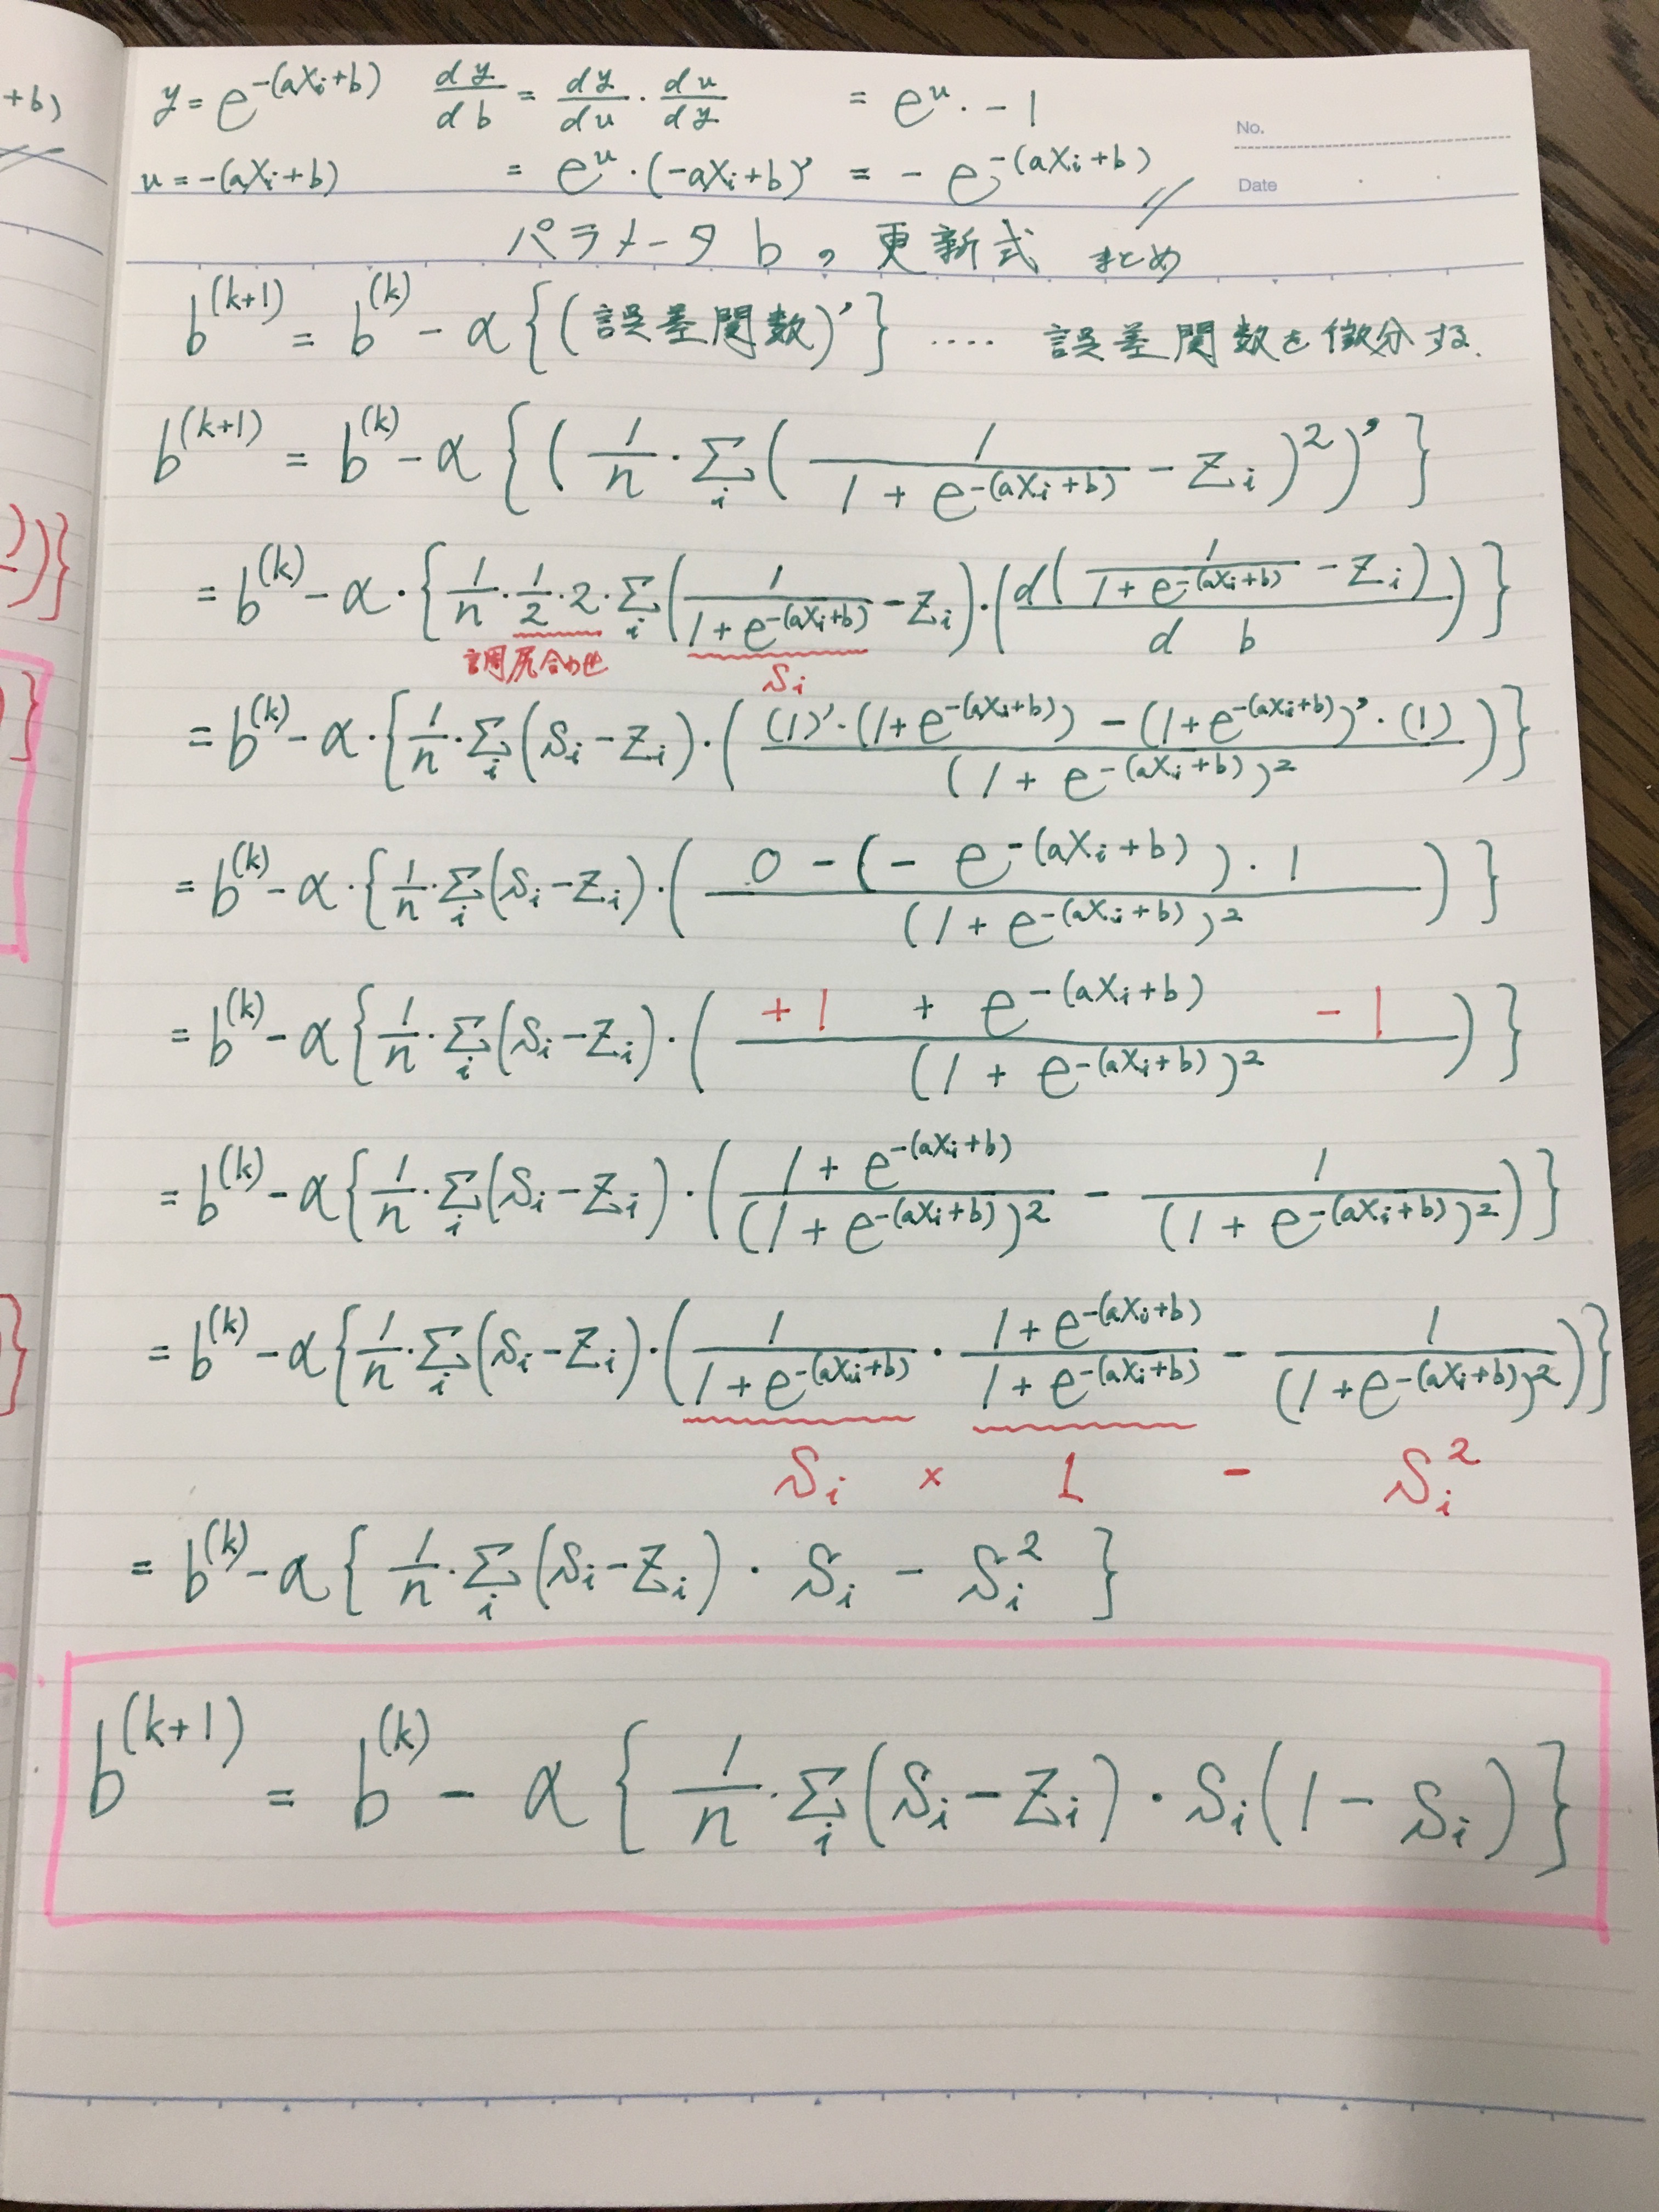 +b)
y = e^{-(aXi+b)} dy/db = dy/du · du/dy = e^u · -1
No.
u = -(aXi+b) = e^u · (-aXi+b)' = - e^{-(aXi+b)} //
Date
パラメータ b の 更新式 まとめ
b^{(k+1)} = b^{(k)} - α {(誤差関数)'} ‥‥ 誤差関数を微分する.
b^{(k+1)} = b^{(k)} - α { ( 1/n · Σ_i ( 1/(1 + e^{-(aXi+b)}) - Zi )^2 )' }
= b^{(k)} - α · { 1/n · 1/2 · 2 · Σ_i ( 1/(1 + e^{-(aXi+b)}) - Zi ) · ( d( 1/(1 + e^{-(aXi+b)}) - Zi ) / d b ) }
調尻合わせ Si
= b^{(k)} - α · { 1/n · Σ_i (Si - Zi) · ( ( (1)' · (1+e^{-(aXi+b)}) - (1+e^{-(aXi+b)})' · (1) ) / (1 + e^{-(aXi+b)})^2 ) }
= b^{(k)} - α · { 1/n · Σ_i (Si - Zi) · ( ( 0 - ( - e^{-(aXi+b)} ) · 1 ) / (1 + e^{-(aXi+b)})^2 ) }
= b^{(k)} - α { 1/n · Σ_i (Si - Zi) · ( ( +1 + e^{-(aXi+b)} - 1 ) / (1 + e^{-(aXi+b)})^2 ) }
= b^{(k)} - α { 1/n · Σ_i (Si - Zi) · ( (1 + e^{-(aXi+b)}) / (1 + e^{-(aXi+b)})^2 - 1 / (1 + e^{-(aXi+b)})^2 ) }
= b^{(k)} - α { 1/n · Σ_i (Si - Zi) · ( 1/(1 + e^{-(aXi+b)}) · (1 + e^{-(aXi+b)})/(1 + e^{-(aXi+b)}) - 1/(1 + e^{-(aXi+b)})^2 ) }
Si × 1 - Si^2
= b^{(k)} - α { 1/n · Σ_i (Si - Zi) · Si - Si^2 }
b^{(k+1)} = b^{(k)} - α { 1/n · Σ_i (Si - Zi) · Si (1 - Si) }